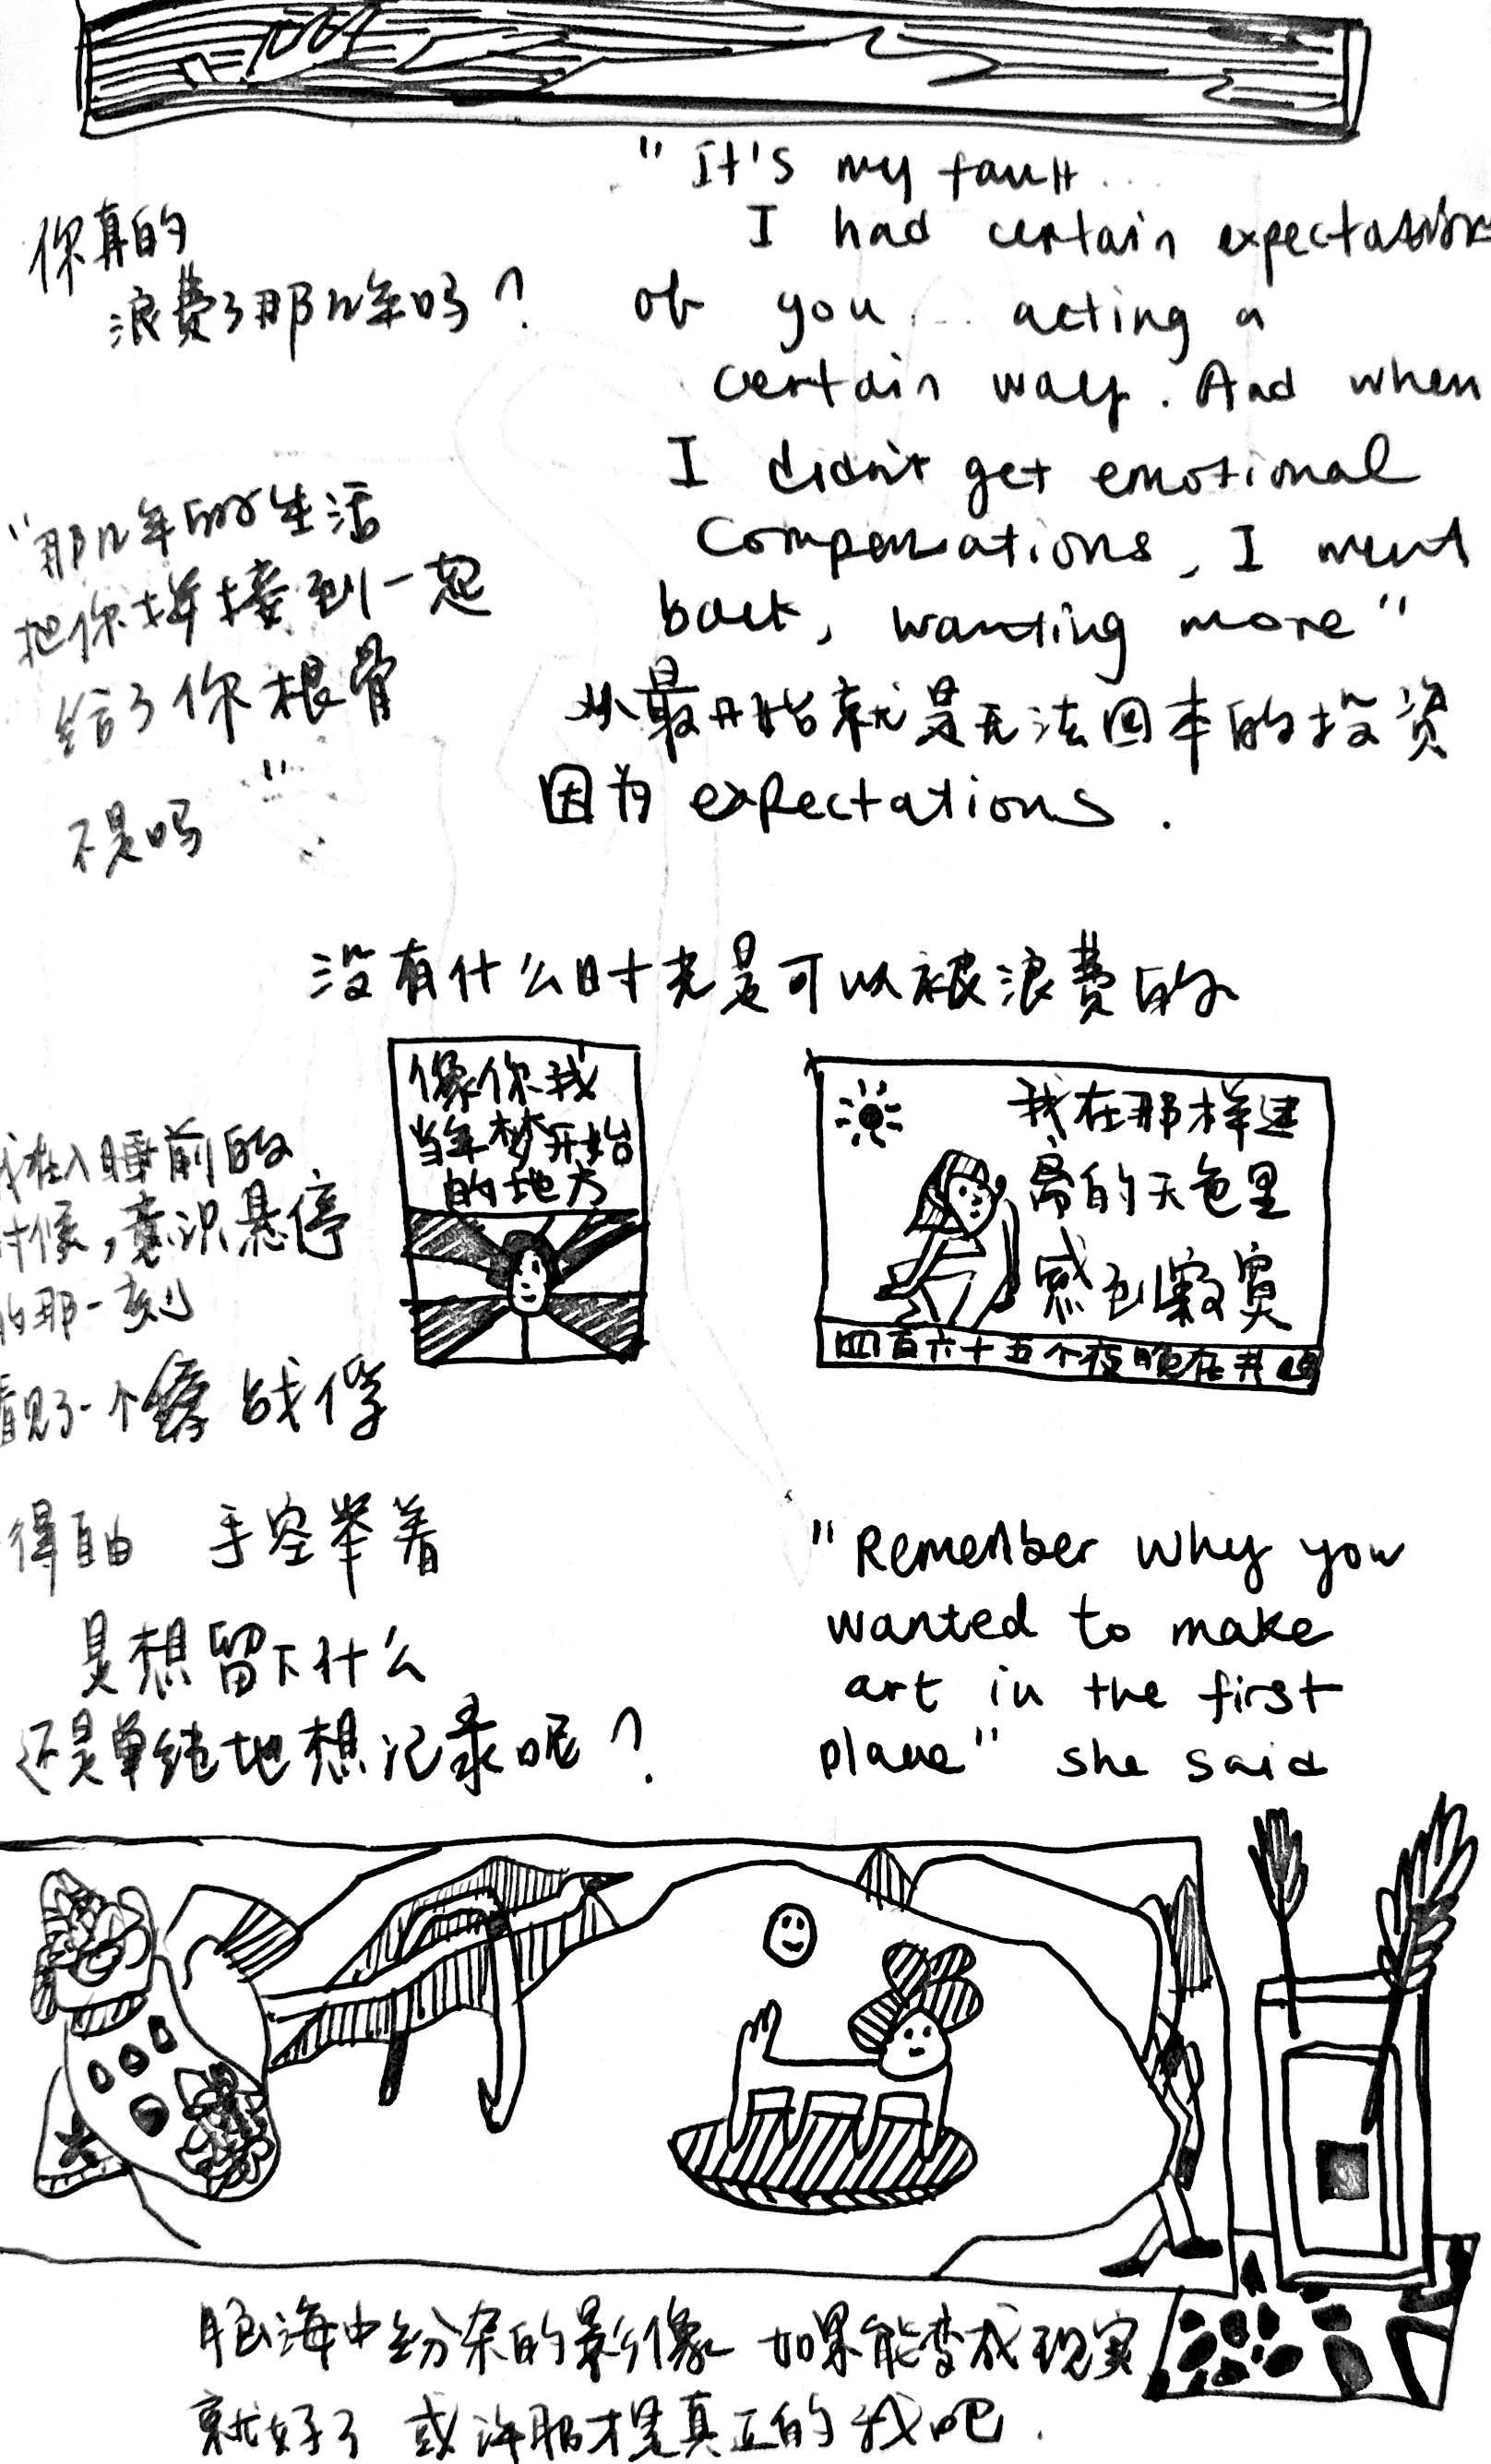 "It's my fault...
I had certain expectations
of you... acting a
certain way. And when
I didn't get emotional
compensations, I went
back, wanting more"
从最开始就是无法回本的投资
因为 expectations.
你真的
浪费了那几年吗？
"那几年的生活
把你拼接到一起
给了你根骨
"
不是吗
没有什么时光是可以被浪费的
像你我
当年梦开始
的地方
我在那样
的天色里
感到寂寞
四百六十五个夜晚在共鸣
我在入睡前的
时候，意识悬停
的那一刻
看见了一个
得自由 手空举着
是想留下什么
还是单纯地想记录呢？
"Remember why you
wanted to make
art in the first
place" she said
脑海中纷杂的影像 如果能变成现实
就好了 或许那才是真正的我吧.